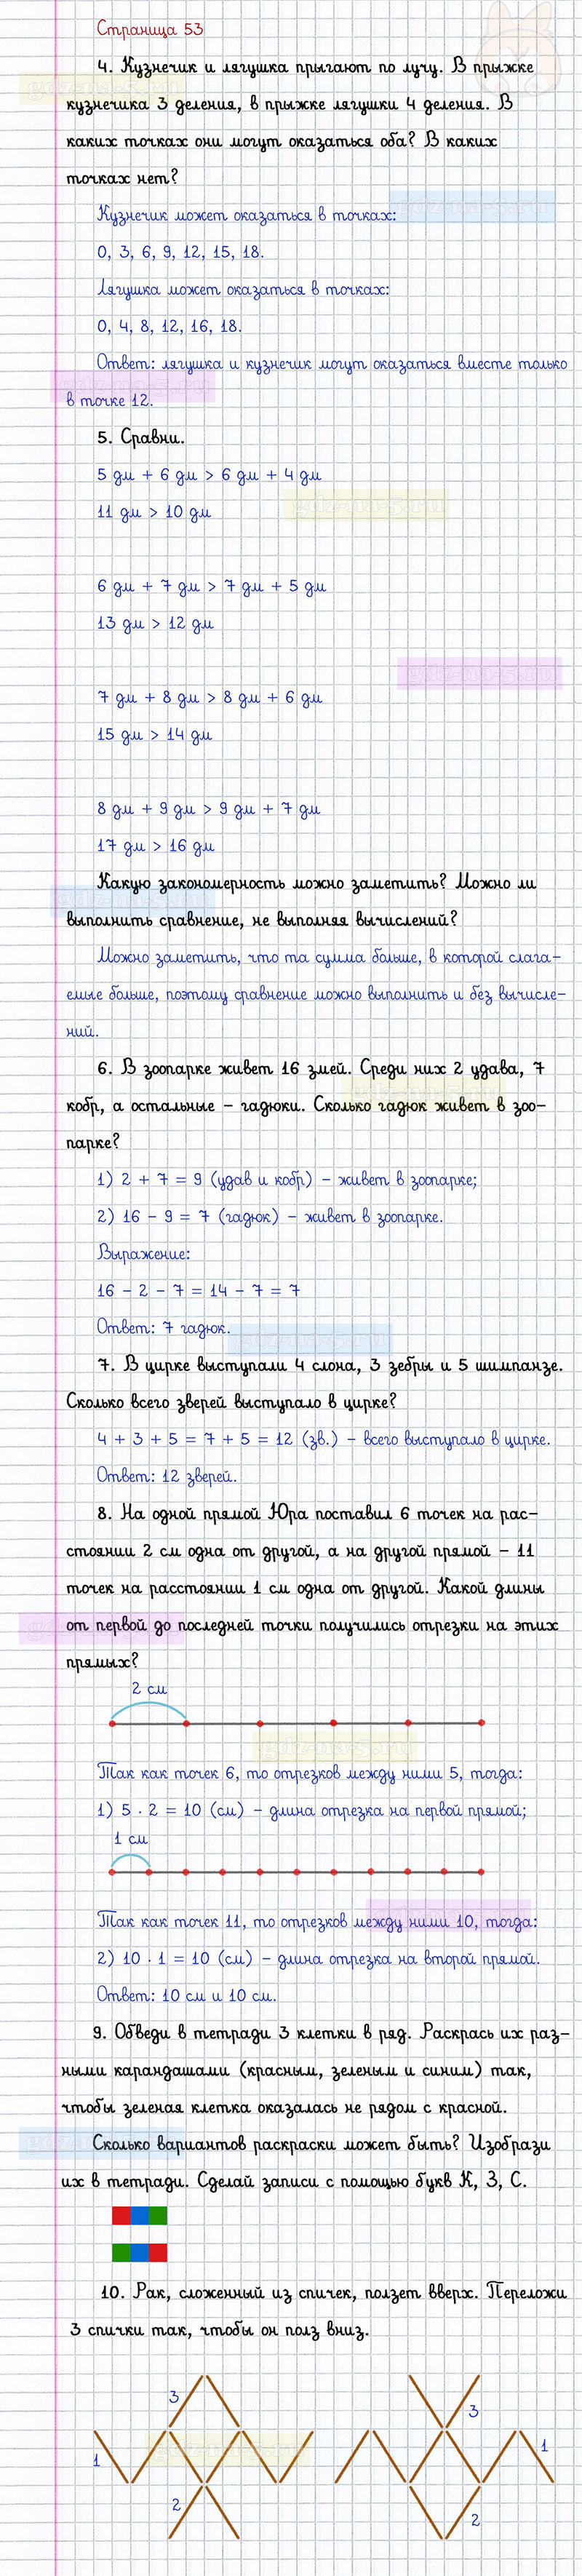 Страница 53
4. Кузнечик и лягушка прыгают по лучу. В прыжке
gdz-na-5.ru
кузнечика 3 деления, в прыжке лягушки 4 деления. В
каких точках они могут оказаться оба? В каких
точках нет?
gdz-na-5.ru
Кузнечик может оказаться в точках:
0, 3, 6, 9, 12, 15, 18.
Лягушка может оказаться в точках:
0, 4, 8, 12, 16, 18.
Ответ: лягушка и кузнечик могут оказаться вместе только
gdz-na-5.ru
в точке 12.
5. Сравни.
5 дм + 6 дм > 6 дм + 4 дм
gdz-na-5.ru
11 дм > 10 дм
6 дм + 7 дм > 7 дм + 5 дм
13 дм > 12 дм
gdz-na-5.ru
7 дм + 8 дм > 8 дм + 6 дм
15 дм > 14 дм
8 дм + 9 дм > 9 дм + 7 дм
17 дм > 16 дм
Какую закономерность можно заметить? Можно ли
gdz-na-5.ru
выполнить сравнение, не выполняя вычислений?
Можно заметить, что та сумма больше, в которой слага-
емые больше, поэтому сравнение можно выполнить и без вычисле-
ний.
6. В зоопарке живет 16 змей. Среди них 2 удава, 7
gdz-na-5.ru
кобр, а остальные – гадюки. Сколько гадюк живет в зоо-
парке?
1) 2 + 7 = 9 (удав и кобр) – живет в зоопарке;
2) 16 – 9 = 7 (гадюк) – живет в зоопарке.
Выражение:
16 – 2 – 7 = 14 – 7 = 7
Ответ: 7 гадюк.
gdz-na-5.ru
7. В цирке выступали 4 слона, 3 зебры и 5 шимпанзе.
Сколько всего зверей выступало в цирке?
4 + 3 + 5 = 7 + 5 = 12 (зв.) – всего выступало в цирке.
Ответ: 12 зверей.
8. На одной прямой Юра поставил 6 точек на рас-
стоянии 2 см одна от другой, а на другой прямой – 11
точек на расстоянии 1 см одна от другой. Какой длины
gdz-na-5.ru
от первой до последней точки получились отрезки на этих
прямых?
2 см
gdz-na-5.ru
Так как точек 6, то отрезков между ними 5, тогда:
1) 5 · 2 = 10 (см) – длина отрезка на первой прямой;
1 см
gdz-na-5.ru
Так как точек 11, то отрезков между ними 10, тогда:
2) 10 · 1 = 10 (см) – длина отрезка на второй прямой.
Ответ: 10 см и 10 см.
9. Обведи в тетради 3 клетки в ряд. Раскрась их раз-
ными карандашами (красным, зеленым и синим) так,
чтобы зеленая клетка оказалась не рядом с красной.
gdz-na-5.ru
Сколько вариантов раскраски может быть? Изобрази
их в тетради. Сделай записи с помощью букв К, З, С.
10. Рак, сложенный из спичек, ползет вверх. Переложи
3 спички так, чтобы он полз вниз.
3
3
1
1
gdz-na-5.ru
2
2